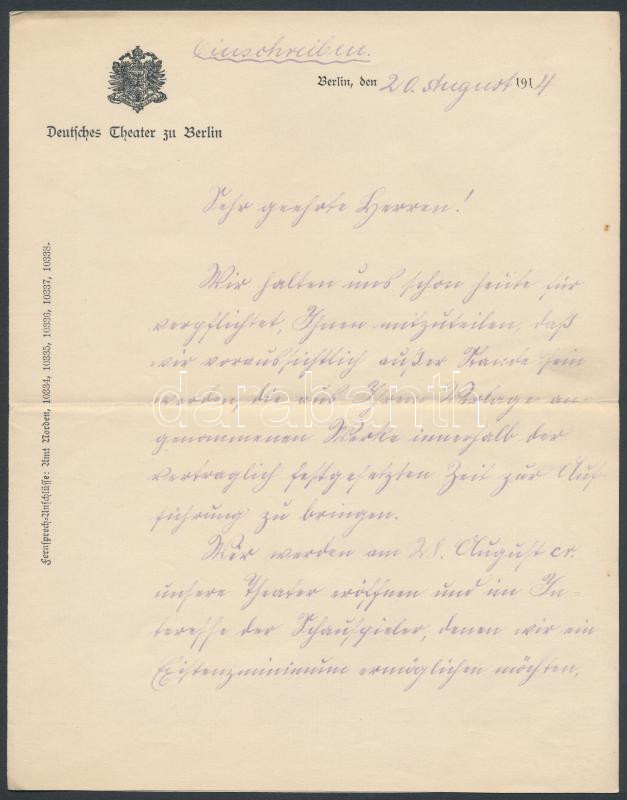 Einschreiben.
Berlin, den 20. August 1914
Deutsches Theater zu Berlin
Fernsprech-Anschlüsse: Amt Norden, 10334, 10335, 10336, 10337, 10338.
Sehr geehrte Herren!
Wir halten uns schon heute für
verpflichtet, Ihnen mitzuteilen, daß
wir voraussichtlich außer Stande sein
werden, die aus Ihrem Verlage an-
genommenen Werke innerhalb der
vertraglich festgesetzten Zeit zur Auf-
führung zu bringen.
Wir werden am 28. August cr.
unsere Theater eröffnen und im In-
teresse der Schauspieler, denen wir ein
Existenzminimum ermöglichen möchten,
darabanth